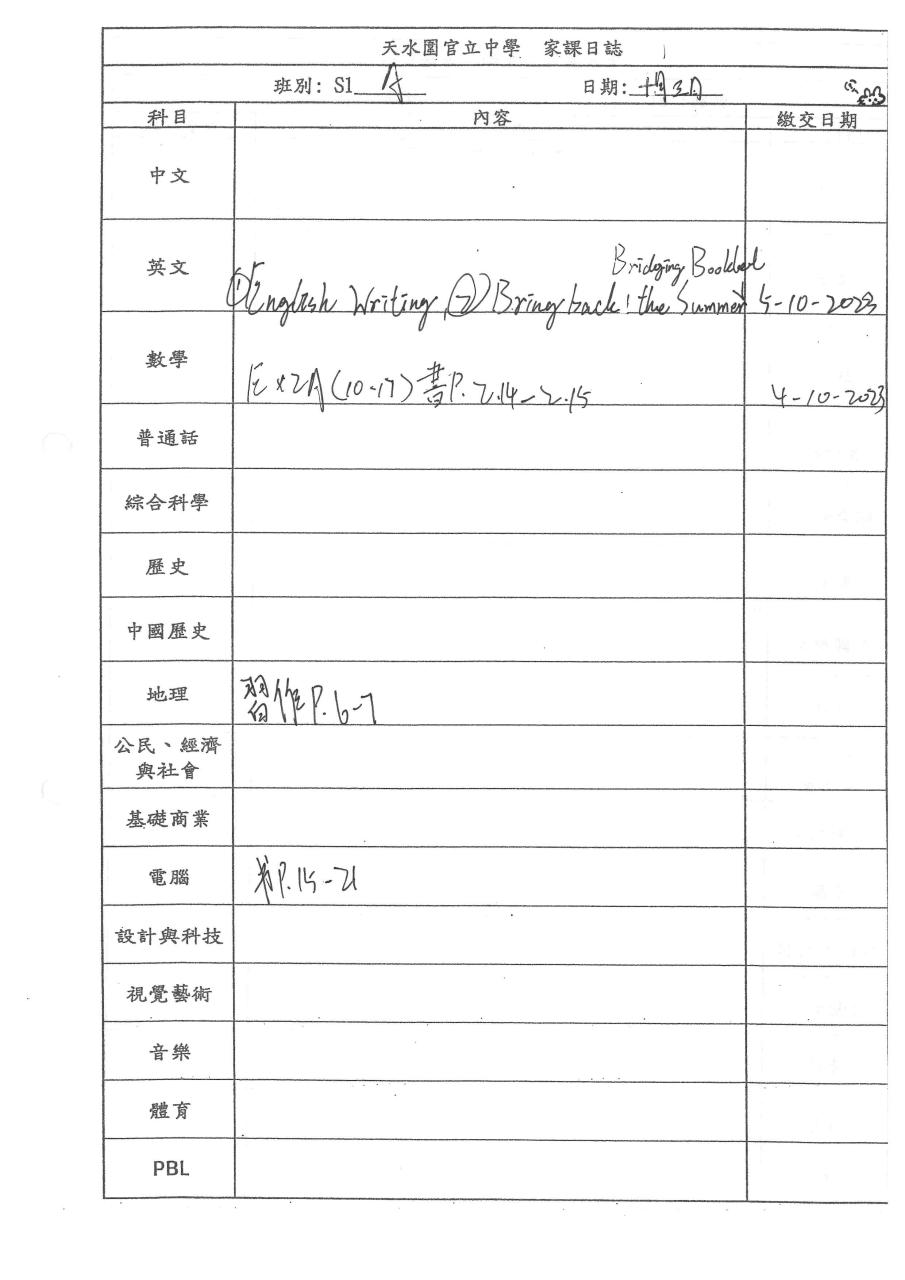 天水圍官立中學 家課日誌
班別: S1 A 日期: 十月3日
科目 內容 繳交日期
中文
英文 Bridging Booklet
①English Writing ②Bring back! the Summer 5-10-2023
數學 Ex2A(10-17)書P.2.14-2.15 4-10-2023
普通話
綜合科學
歷史
中國歷史
地理 習作P.6-7
公民、經濟
與社會
基礎商業
電腦 書P.15-21
設計與科技
視覺藝術
音樂
體育
PBL